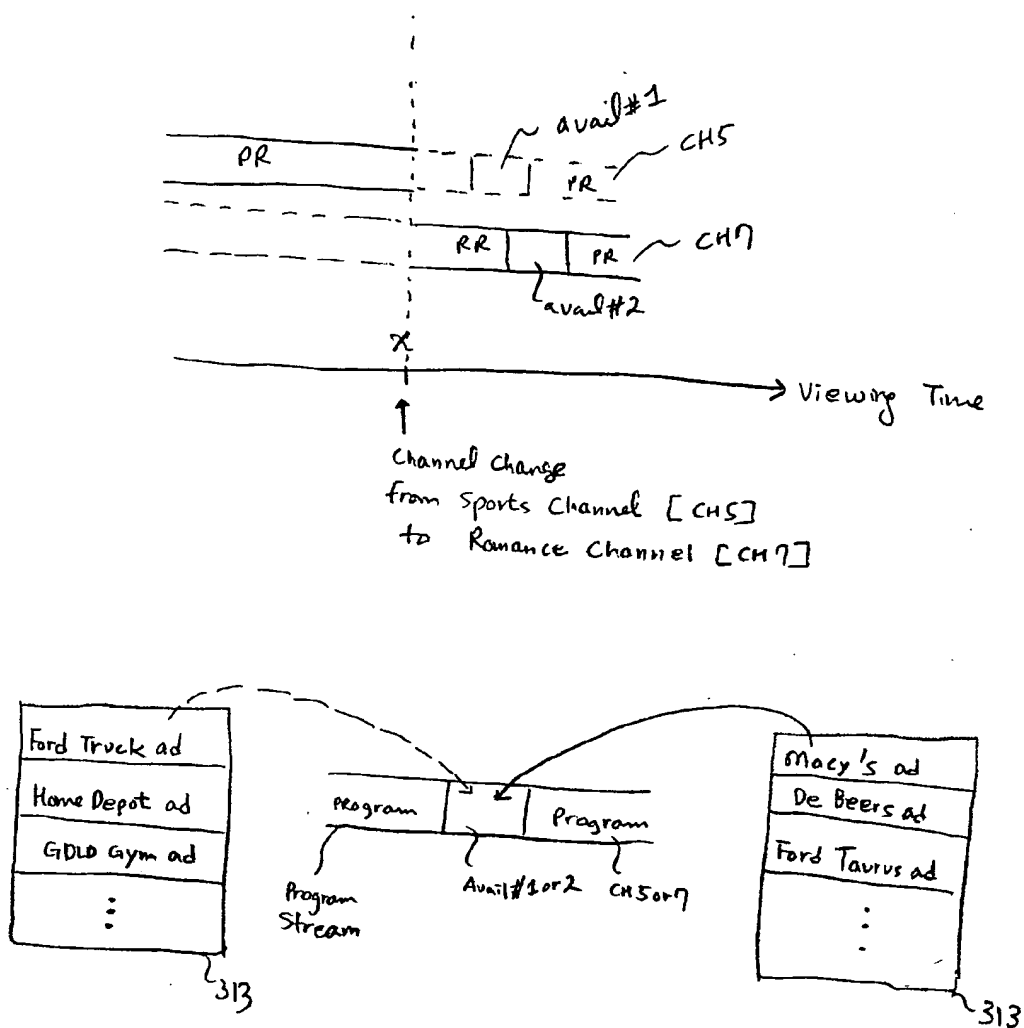 avail #1
PR
CH5
PR
RR
PR
CH7
avail #2
x
Viewing Time
Channel Change
from Sports Channel [CH5]
to Romance Channel [CH7]
Ford Truck ad
Home Depot ad
GOLD Gym ad
313
Program
Program
Program
Stream
Avail #1 or 2
CH5 or 7
Macy's ad
De Beers ad
Ford Taurus ad
313